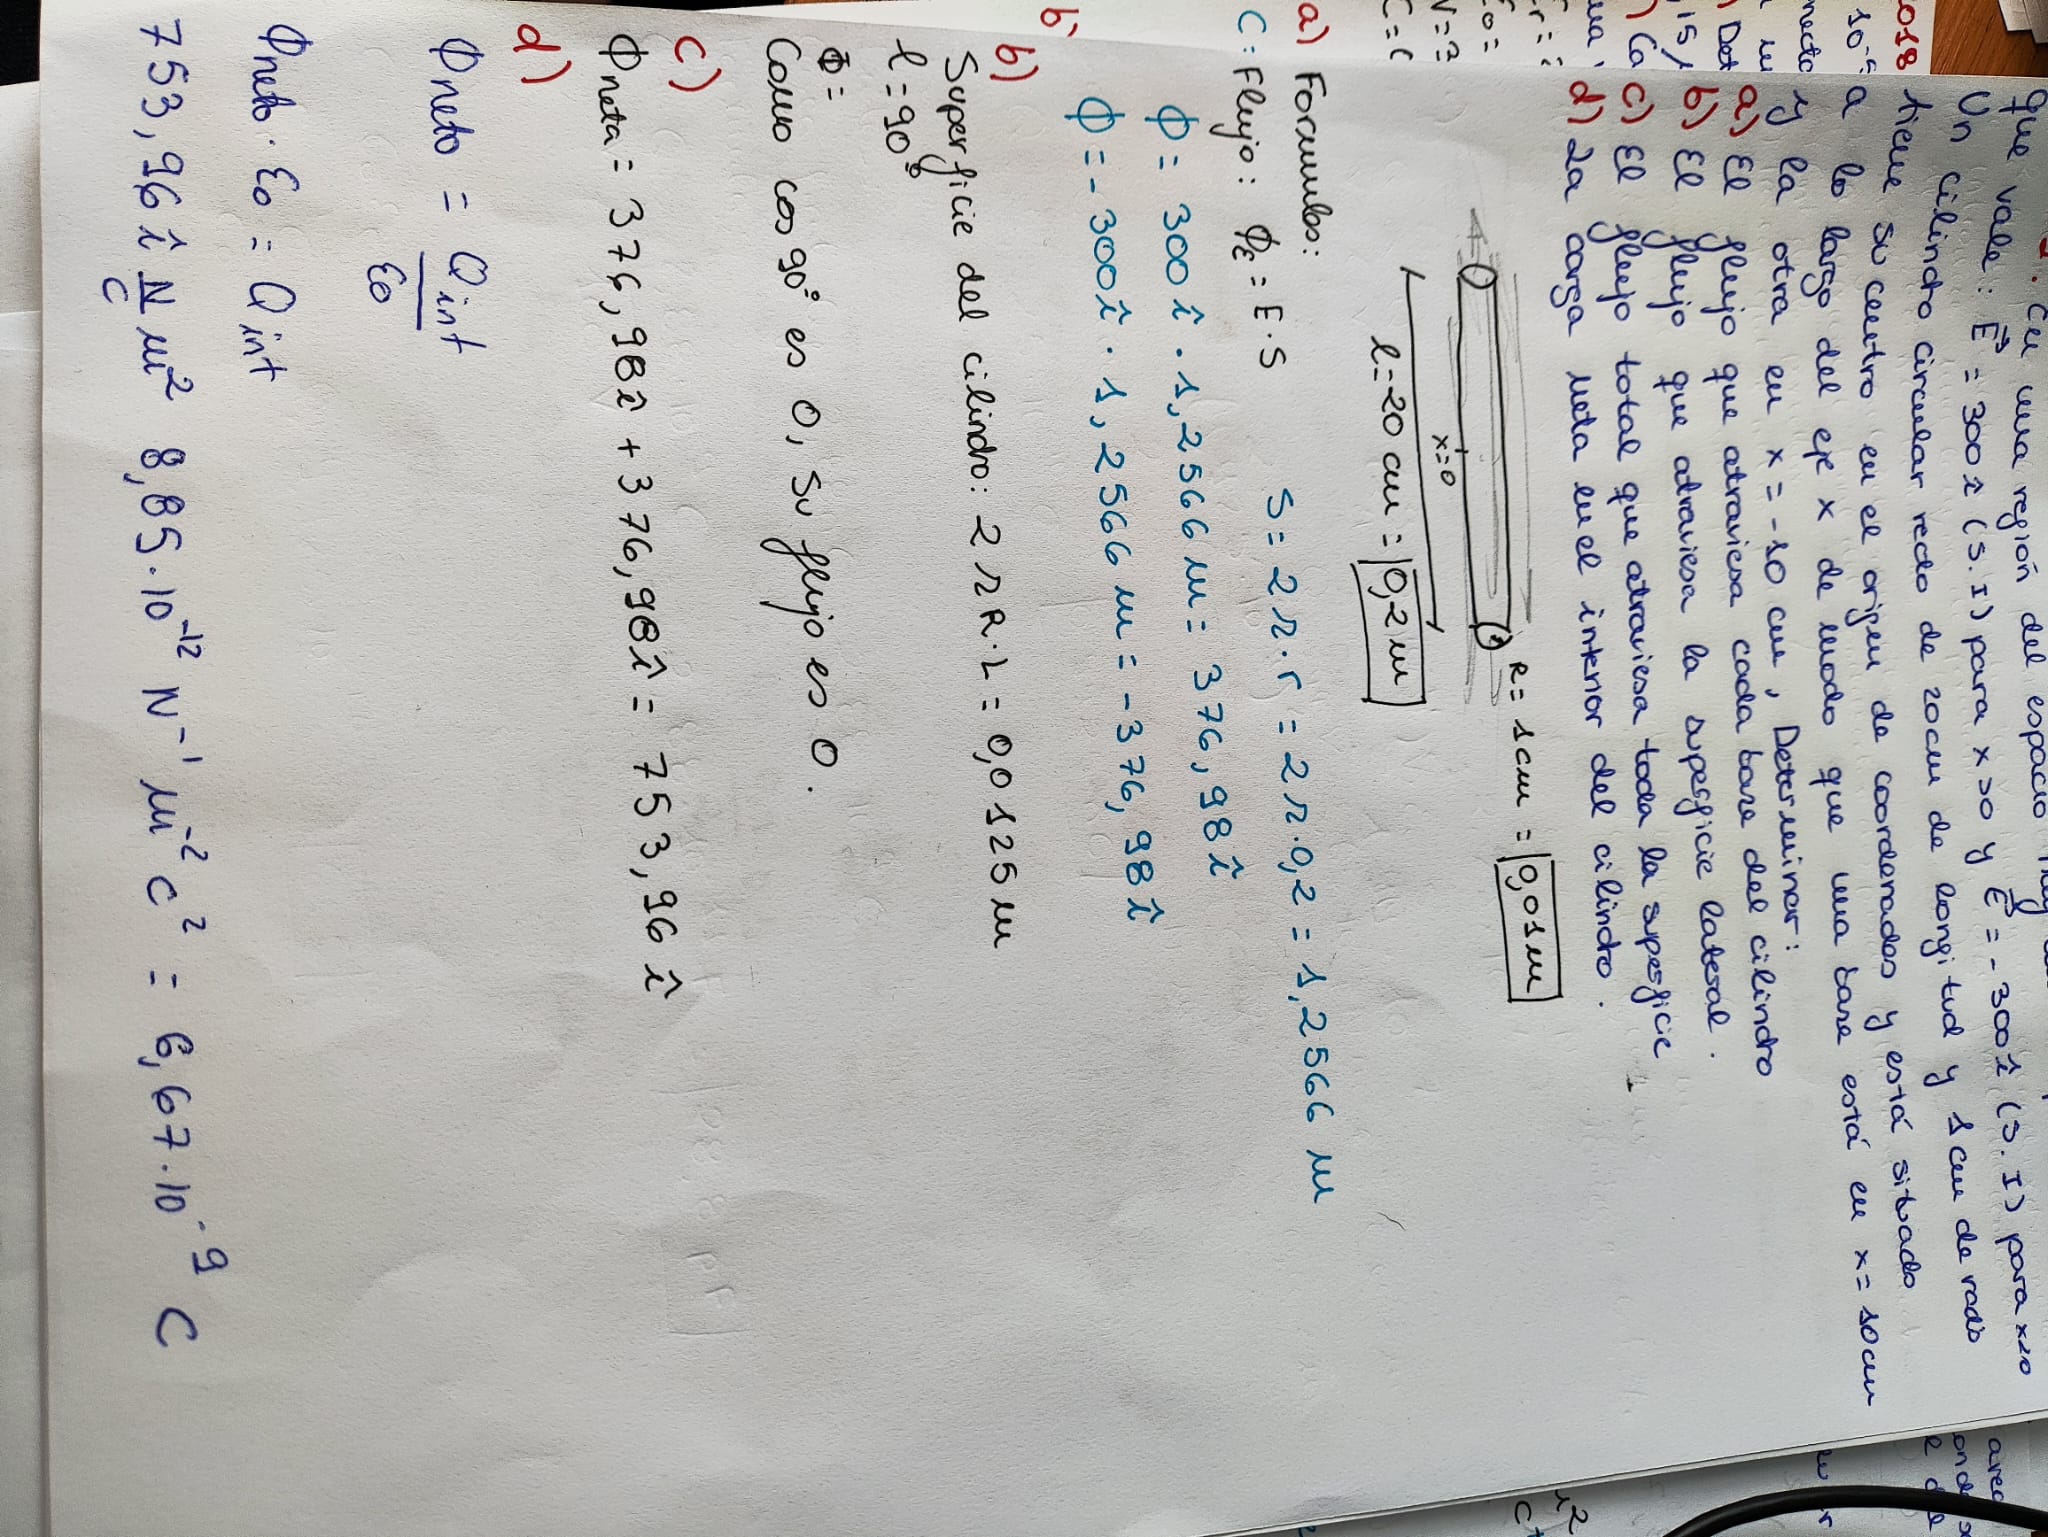 . En una región del espacio hay
que vale: E⃗ = 300 î (S.I) para x>0 y E⃗ = -300 î (S.I) para x<0
Un cilindro circular recto de 20cm de longitud y 1 cm de radio
tiene su centro en el origen de coordenadas y está situado
a lo largo del eje x de modo que una base está en x= 10cm
y la otra en x = -10 cm, Determinar:
a) El flujo que atraviesa cada base del cilindro
b) El flujo que atraviesa la superficie lateral.
c) El flujo total que atraviesa toda la superficie
d) La carga neta en el interior del cilindro.
R= 1cm = 0,01m
x=0
l=20 cm = 0,2 m
a) Formulas:
S= 2π·r = 2π·0,2 = 1,2566 m
C: Flujo: ϕE = E·S
ϕ= 300 î · 1,2566 m = 376,98 î
ϕ = -300 î · 1,2566 m = -376,98 î
b
b)
Superficie del cilindro: 2πR·L = 0,0125 m
l=90º
Φ=
Como cos 90º es 0, su flujo es 0.
c)
ϕneta = 376,98 î + 376,98 î = 753,96 î
d)
ϕneto = Qint
ε0
ϕneto · ε0 = Qint
753,96 î N/C m² 8,85·10⁻¹² N⁻¹ m⁻² C² = 6,67·10⁻⁹ C
018
10
necto
Det
15,
Ca
ε0=
V=3
C=(